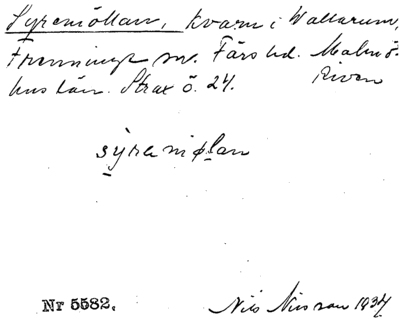 Syremöllan, kvarn i Wallarum,
Frenninge sn. Färs hd. Malmö-
hus län. Strax ö. 24. Riven
sýreniølan
Nr 5582. Nils Nilsson 1934